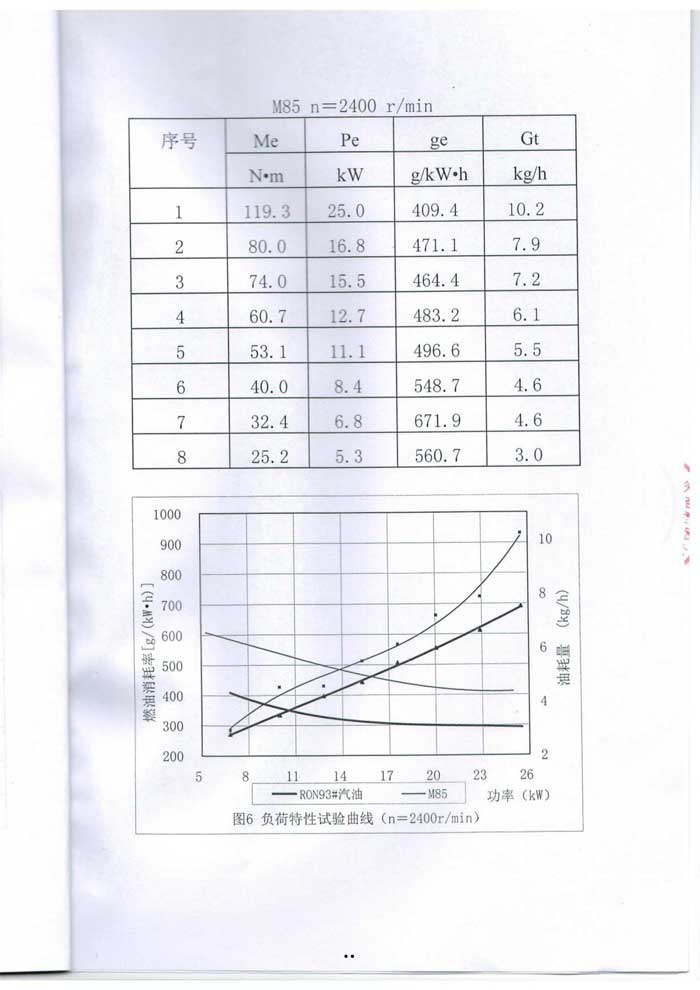 M85 n＝2400 r/min
序号 Me Pe ge Gt
N•m kW g/kW•h kg/h
1 119.3 25.0 409.4 10.2
2 80.0 16.8 471.1 7.9
3 74.0 15.5 464.4 7.2
4 60.7 12.7 483.2 6.1
5 53.1 11.1 496.6 5.5
6 40.0 8.4 548.7 4.6
7 32.4 6.8 671.9 4.6
8 25.2 5.3 560.7 3.0
燃油消耗率[g/(kW•h)]
1000
900
800
700
600
500
400
300
200
10
8
6
4
2
油耗量 (kg/h)
5 8 11 14 17 20 23 26
RON93#汽油 M85 功率（kW）
图6 负荷特性试验曲线（n＝2400r/min）